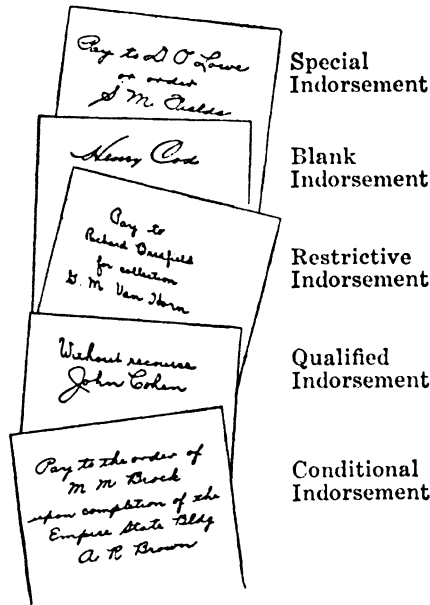 Pay to D O Lowe
or order
S. M. Fields
Special
Indorsement
Henry Cod
Blank
Indorsement
Pay to
Richard
for collection
G. M. Van Horn
Restrictive
Indorsement
Without recourse
John Cohen
Qualified
Indorsement
Pay to the order of
M M Brock
upon completion of the
Empire State Bldg
A R Brown
Conditional
Indorsement